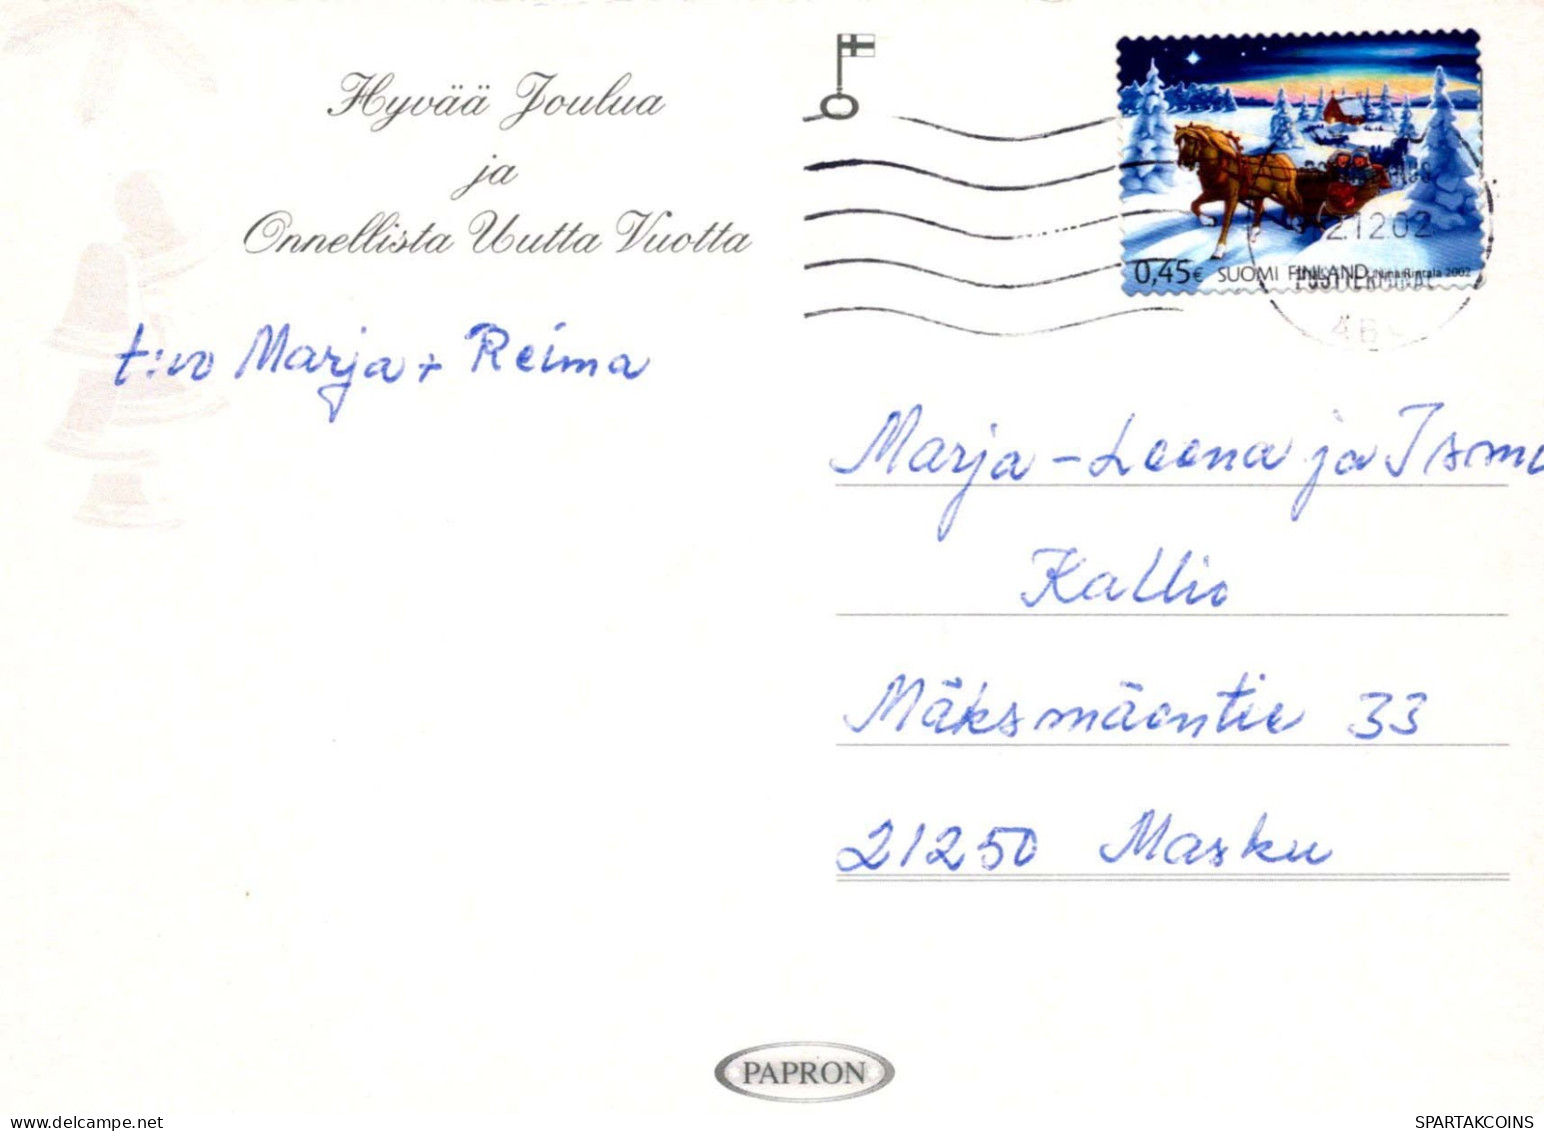 Hyvää Joulua
ja
Onnellista Uutta Vuotta
t:vo Marja + Reima
0,45€ SUOMI FINLAND Nina Rintala 2002
2.12.02
POSTTERMINAL
Marja-Leena ja Ismo
Kallio
Mäksmäentie 33
21250 Masku
PAPRON
SPARTAKCOINS